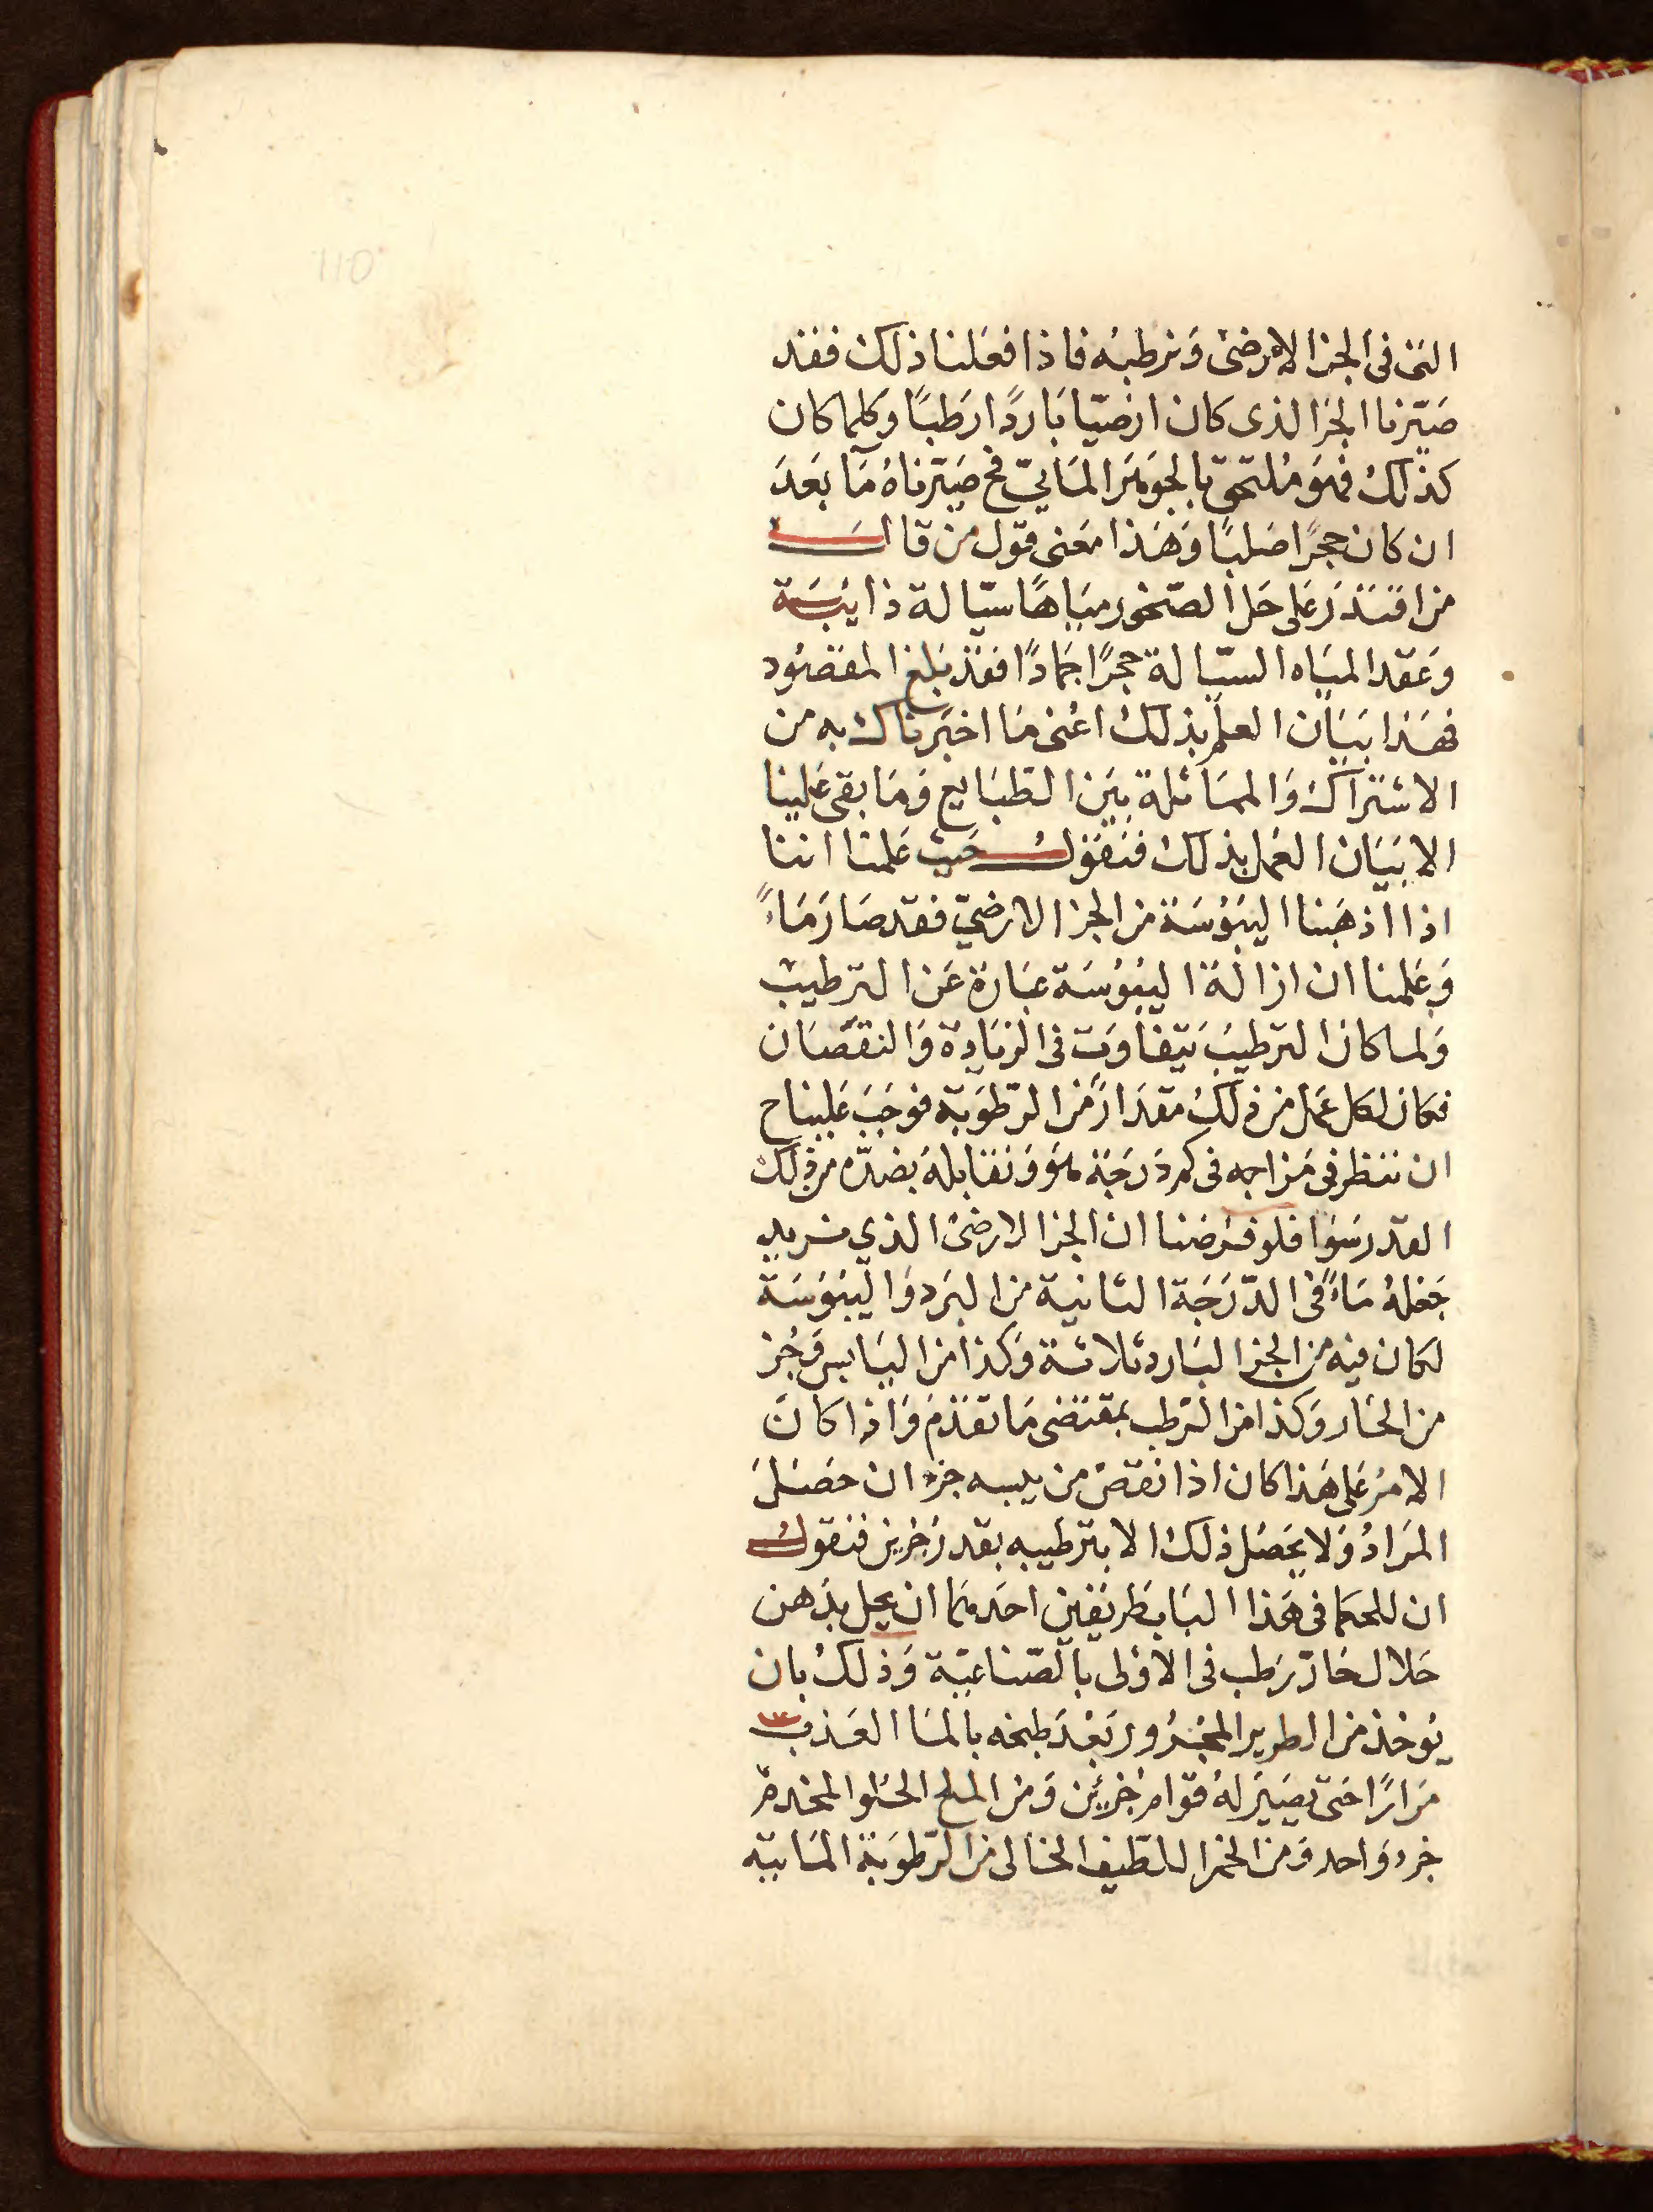 التى فى الجزا الارضى ونرطبه فاذا فعلنا ذلك فقد
صيّرنا الجزا الذى كان ارضيّا بَاردًا رَطبًا وكلما كان
كذلك فهوَ مُلتحق بالجوهَر المَائيّ فح صَيّرناهُ مَآ بَعدَ
ان كان حجرًا صَلبًا وَهَذا معَنى قول من قال
من اقتدَرَ على حَل الصّخور ميَاهًا سيّالة ذايبَة
وعَقد الميَاه السيّالة حجرًا جَمادًا فقد بَلغ المقصُود
فهَذا بَيَان العلم بذلك اعُنى مَا اخبَرناك به من
الاشتراك وَالممَاثلة بيَن الطبَايع وَمَا بقى عَلينا
الا بَيَان العَمل بذلك فنَقول حَيث عَلمنا اننا
اذا اذهَبنا اليبُوسَة من الجزا الارضيّ فقد صَارَ مَاءً
وَعَلمنا ان ازالَة اليبُوسَة عبَارَة عَن الترطيب
وَلما كان الترطيبَ يَتفاوَت فى الزيَادة وَالنقصَان
فكان لكل عَمل من ذلك مقدَارًا من الرّطوَبة فوَجَبَ عَليناح
ان ننظر فى مَزاجه فى كم دَرَجَة هوَ وَنقابلهُ بضدّه من ذلك
القدر سَوا فلو فرَضنا ان الجزا الارضىّ الذي نريد
جَعلهُ مَاءً فى الدّرَجَة الثانية من البَرد وَاليبُوسَة
لكان فيه من الجزا البَارد ثلاثة وَكذا من اليَابس وَجُز
من الحَار وَكذا من الرّطب بمقتضى مَا تقدَم وَاذا كانَ
الامرُ عَلى هَذا كان اذا نقصَ من يبسه جزءان حصَلَ
المرَادُ وَلا يحَصُل ذلك الا بترطيبه بقدرَ جزين فنقول
ان للحكما فى هَذا البَاب طَريقين احَدهَما ان يحل بدَهن
حَلال حَارّ رَطب فى الاوْلى بالصّناعَيّة وَذلك بان
يُوخذ من الطرير المجْرُور بَعْدَ طبخه بالمَا العَذب
مرَارًا حَتى يَصيَر لهُ قوَام جُزئيَن وَمن الملح الحلو المخدم
جزء وَاحد وَمن الخمرا للطّيف الخالى من الرّطوبَة المَائيّه